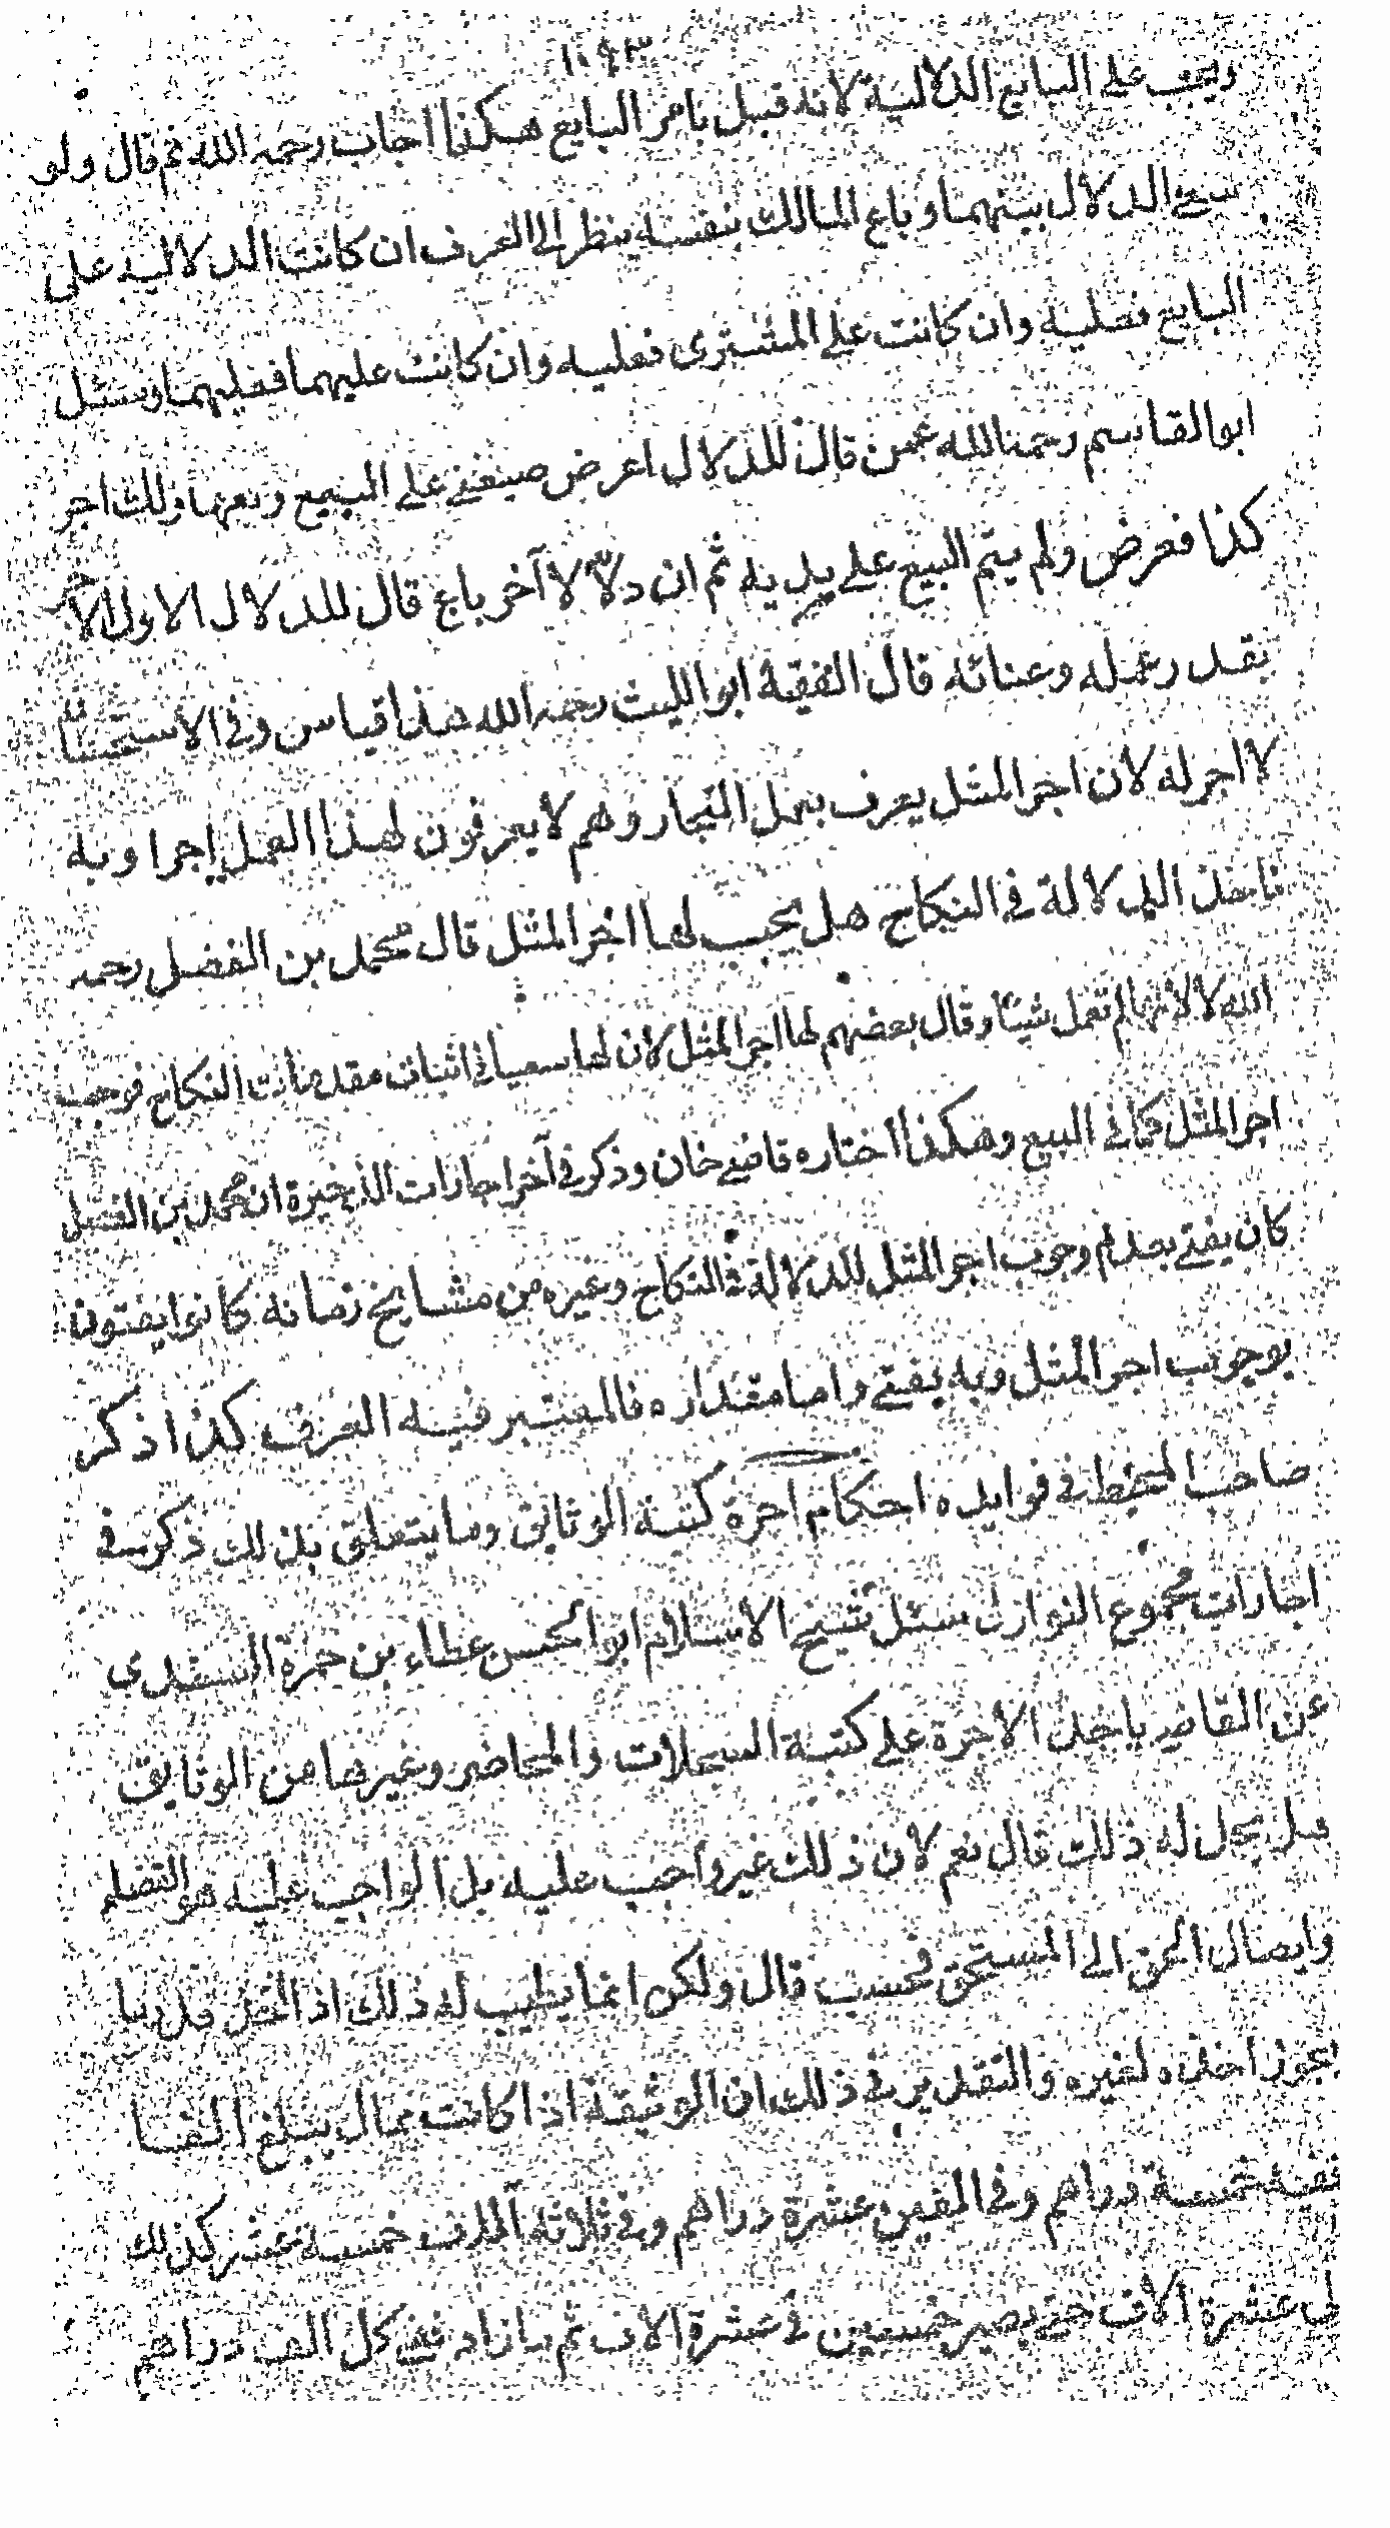 ١٠٩٣
ويجب على البايع الدلالية لانه قبل بامر البايع هكذا اجاب رحمه الله ثم قال ولو
سعى الدلال بينهما وباع المالك بنفسه ينظر الى العرف ان كانت الدلالية على
البايع فعليه وان كانت على المشترى فعليه وان كانت عليهما فعليهما وسئل
ابو القاسم رحمه الله عمن قال للدلال اعرض صيعتى على البيع وبعها ولك اجر
كذا فعرض ولم يتم البيع على يديه ثم ان دلالا آخر باع قال للدلال الاول الاجر
بقدر عمله وعنائه قال الفقيه ابو الليث رحمه الله هذا قياس وفى الاستحسان
لا اجر له لان اجر المثل يعرف بعمل التجار وهم لا يعرفون لهذا العمل اجرا وبه
ناخذ الدلالة فى النكاح هل يجب لها اجر المثل قال محمد بن الفضل رحمه
الله لا لانها لم تعمل شيئا وقال بعضهم لها اجر المثل لان لها سعيا فى اثبات مقدمات النكاح فوجب
اجر المثل كما فى البيع وهكذا اختاره قاضى خان وذكر فى آخر اجارات الذخيرة ان محمد بن الفضل
كان يفتى بعدم وجوب اجر المثل للدلالة فى النكاح وغيره من مشايخ زمانه كانوا يفتون
بوجوب اجر المثل وبه يفتى واما مقداره فالمعتبر فيه العرف كذا ذكر
صاحب المحيط فى فوايده احكام اجرة كتبة الوثائق وما يتعلق بذلك ذكر فى
اجارات مجموع النوازل سئل شيخ الاسلام ابو الحسن عطاء بن حمزة السغدى
عن القاضى ياخذ الاجرة على كتبة السجلات والمحاضر وغيرها من الوثايق
هل يحل له ذلك قال نعم لان ذلك غير واجب عليه بل الواجب عليه هو القضاء
وايصال الحق الى المستحق فحسب قال ولكن انما يطيب له ذلك اذا اخذ قدر ما
يجوز اخذه لغيره والتقدير فى ذلك ان الوثيقة اذا كانت بمال يبلغ الفا
ففيه خمسة دراهم وفى الفين عشرة دراهم وفى ثلاثة آلاف خمسة عشر كذلك
الى عشرة آلاف حتى يصير خمسين فى عشرة الاف ثم ما زاد ففى كل الف دراهم